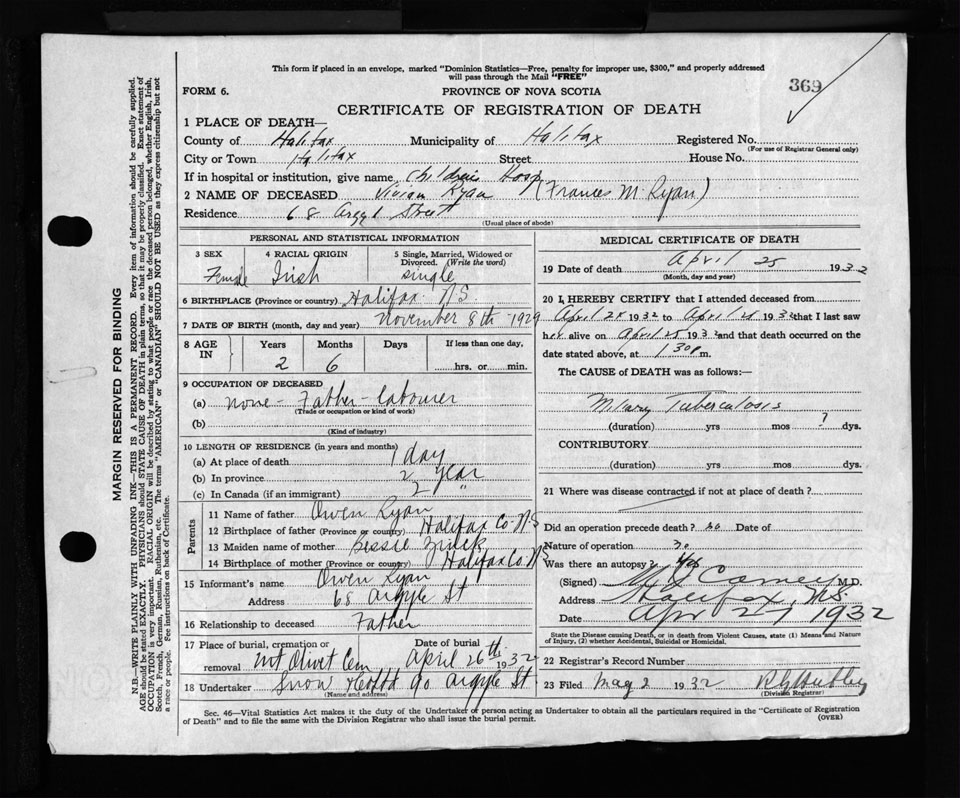 This form if placed in an envelope, marked "Dominion Statistics—Free, penalty for improper use, $300," and properly addressed
will pass through the Mail "FREE"
369
FORM 6.
PROVINCE OF NOVA SCOTIA
CERTIFICATE OF REGISTRATION OF DEATH
1 PLACE OF DEATH—
County of Halifax Municipality of Halifax Registered No.
(For use of Registrar General only)
City or Town Halifax Street House No.
If in hospital or institution, give name Childrens Hosp
2 NAME OF DECEASED Vivian Ryan (Frances M Ryan)
Residence 68 Argyl Street
(Usual place of abode)
PERSONAL AND STATISTICAL INFORMATION
3 SEX 4 RACIAL ORIGIN 5 Single, Married, Widowed or
Divorced. (Write the word)
Female Irish single
6 BIRTHPLACE (Province or country) Halifax N.S.
7 DATE OF BIRTH (month, day and year) November 8th 1929
8 AGE IN Years Months Days If less than one day,
2 6 hrs. or min.
9 OCCUPATION OF DECEASED
(a) none - Father - labourer
(Trade or occupation or kind of work)
(b)
(Kind of industry)
10 LENGTH OF RESIDENCE (in years and months)
(a) At place of death 1 day
(b) In province 2 year
(c) In Canada (if an immigrant) 2 "
Parents
11 Name of father Owen Ryan
12 Birthplace of father (Province or country) Halifax Co N.S
13 Maiden name of mother Bessie Zinck
14 Birthplace of mother (Province or country) Halifax Co. N.S
15 Informant's name Owen Ryan
Address 68 Argyle St
16 Relationship to deceased Father
17 Place of burial, cremation or Date of burial
removal Mt Olivet Cem April 26th 1932
18 Undertaker Snow & Co Ltd 90 Argyle St
(Name and address)
MEDICAL CERTIFICATE OF DEATH
19 Date of death April 25 1932
(Month, day and year)
20 I, HEREBY CERTIFY that I attended deceased from
April 1932 to April 1932 that I last saw
her alive on April 25 1932 and that death occurred on the
date stated above, at 1.30 p m.
The CAUSE of DEATH was as follows:—
Miliary Tuberculosis
(duration) yrs mos ? dys.
CONTRIBUTORY
(duration) yrs mos dys.
21 Where was disease contracted if not at place of death?
Did an operation precede death? no Date of
Nature of operation
Was there an autopsy? Yes
(Signed) M.D.
Address Halifax, N.S.
Date Apr 27 1932
State the Disease causing Death, or in death from Violent Causes, state (1) Means and Nature
of Injury, (2) whether Accidental, Suicidal or Homicidal.
22 Registrar's Record Number
23 Filed May 2 1932
(Division Registrar)
Sec. 46—Vital Statistics Act makes it the duty of the Undertaker or person acting as Undertaker to obtain all the particulars required in the "Certificate of Registration
of Death" and to file the same with the Division Registrar who shall issue the burial permit. (OVER)
MARGIN RESERVED FOR BINDING
N.B.—WRITE PLAINLY WITH UNFADING INK—THIS IS A PERMANENT RECORD. Every item of information should be carefully supplied.
AGE should be stated EXACTLY. PHYSICIANS should STATE CAUSE OF DEATH in plain terms, so that it may be properly classified. Exact statement of
OCCUPATION is very important. RACIAL ORIGIN will be described by stating to what people or race the deceased person belonged, whether English, Irish,
Scotch, French, German, Russian, Ruthenian, etc. The terms "AMERICAN" or "CANADIAN" SHOULD NOT BE USED as they express citizenship but not
a race or people. See instructions on back of Certificate.